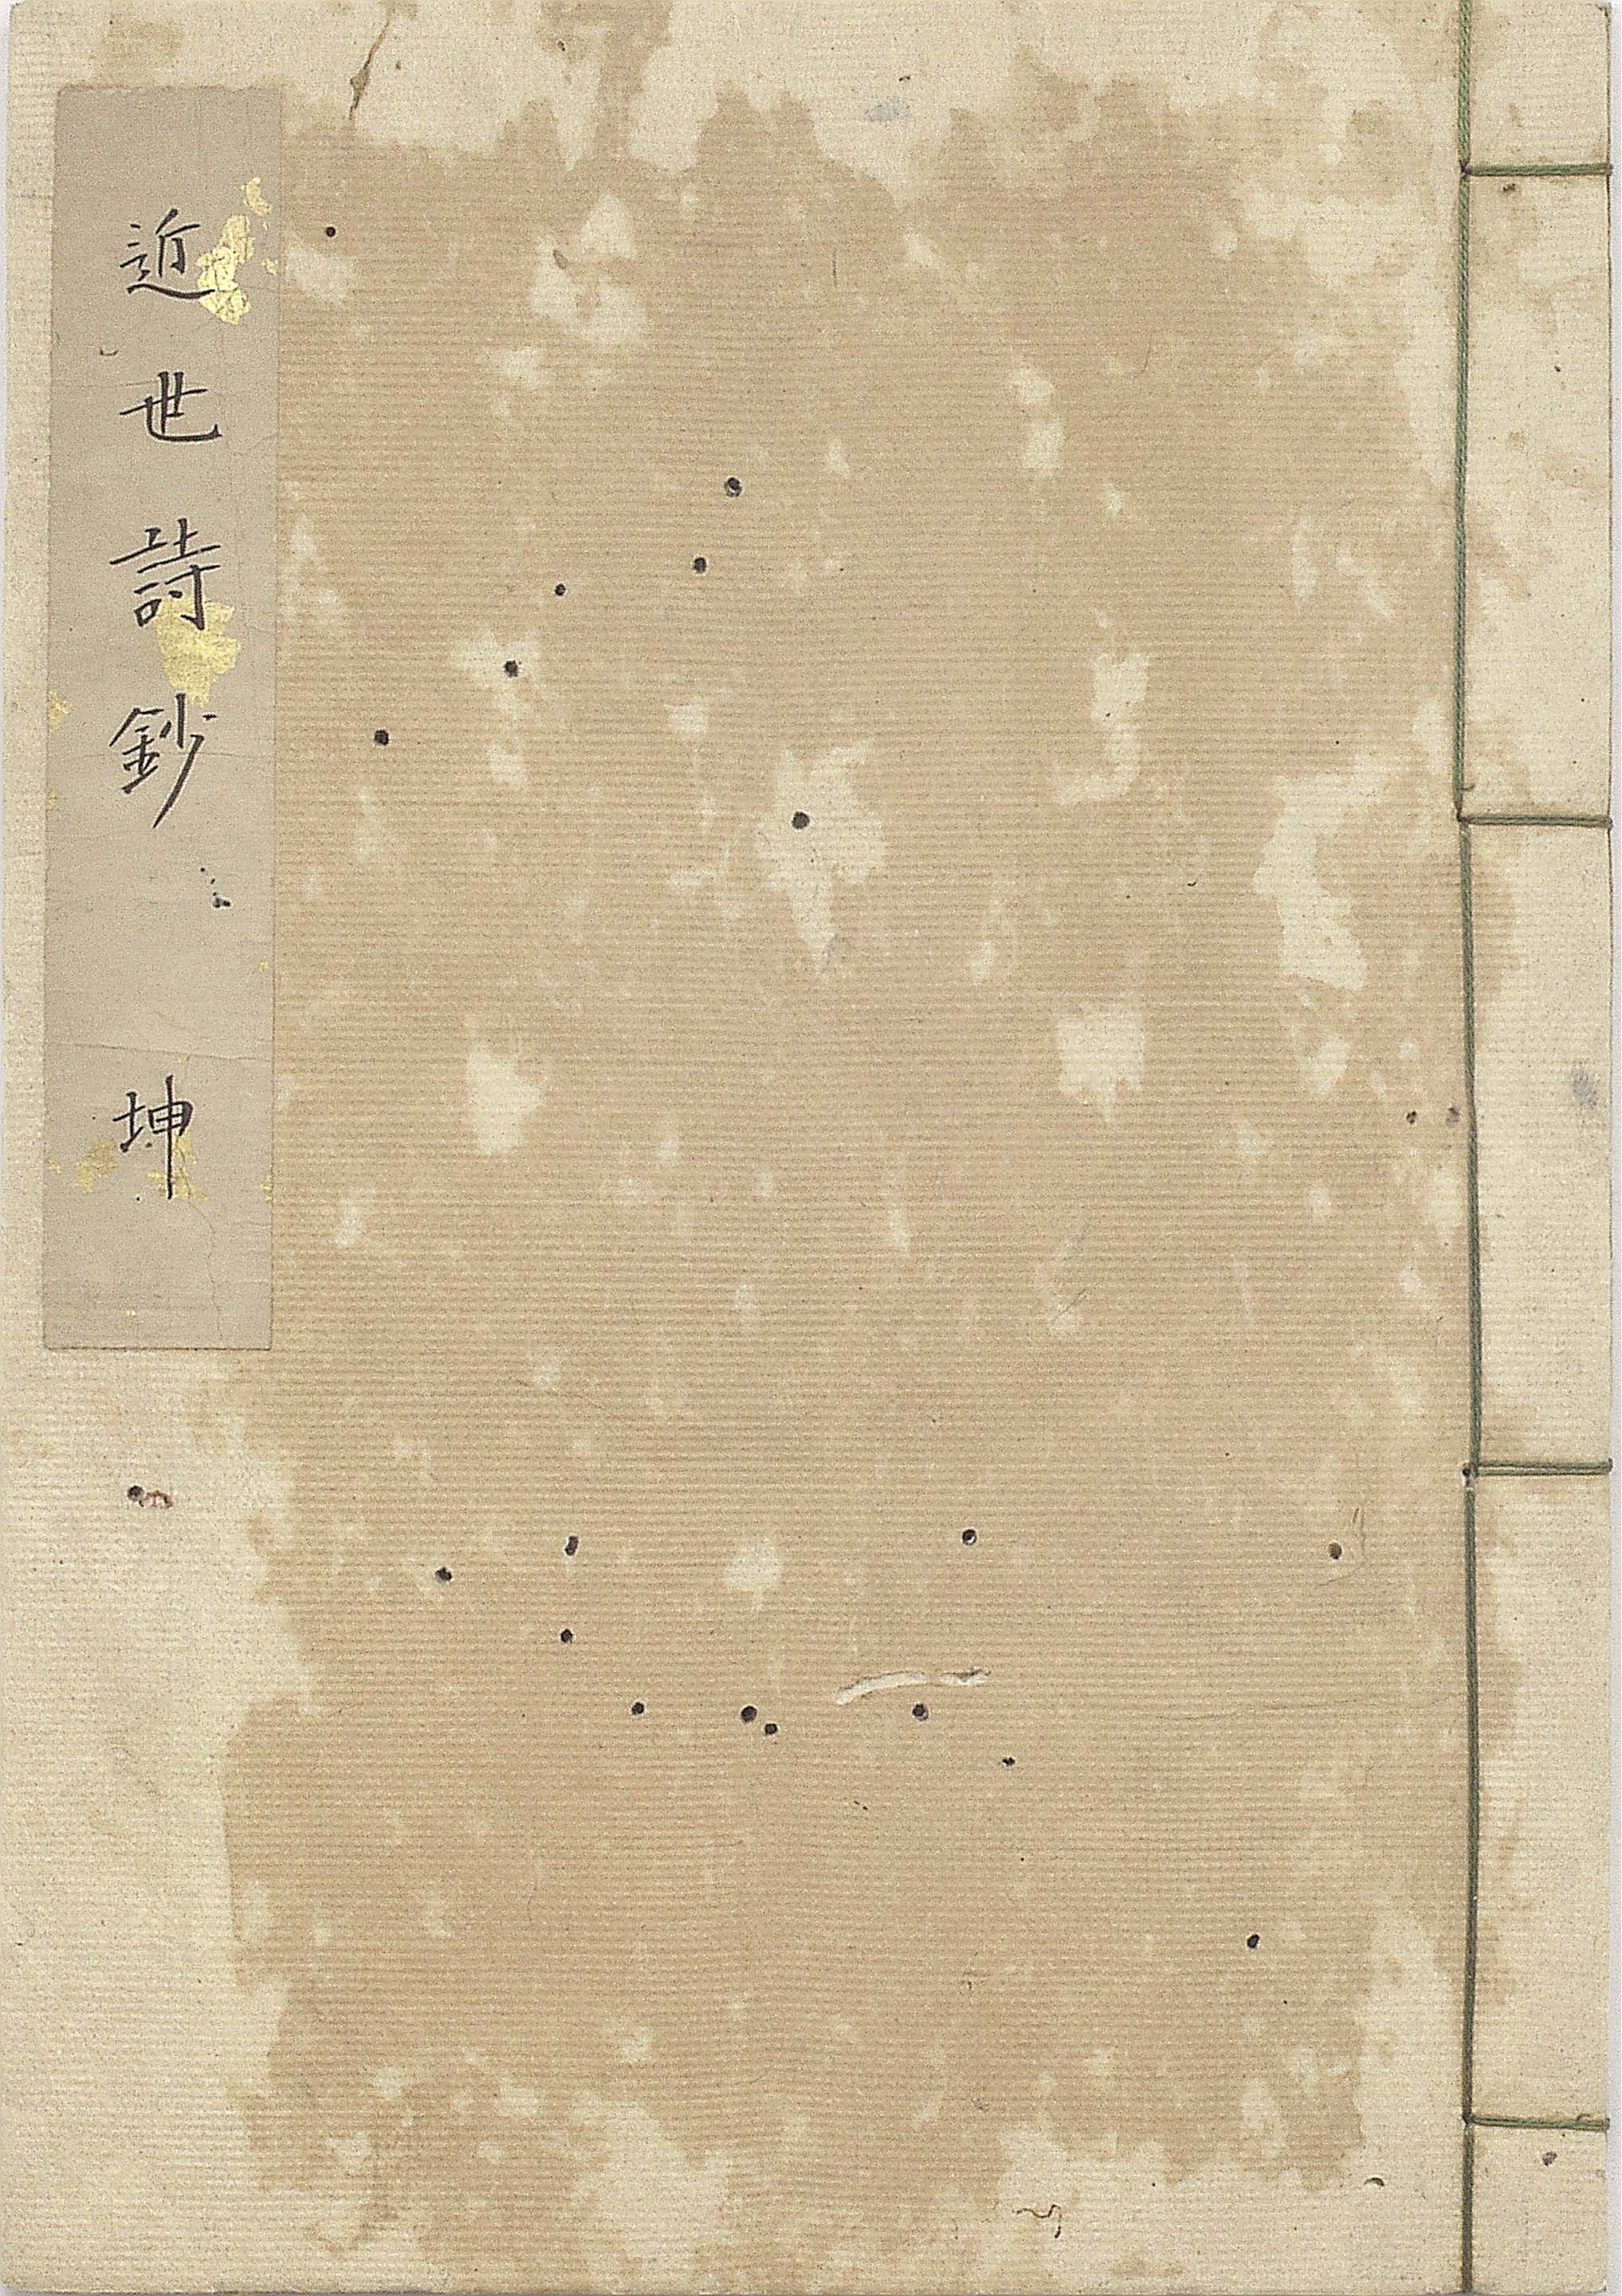 近世詩鈔 坤